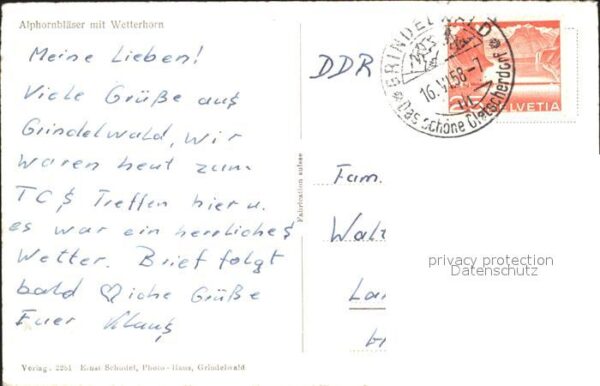 Alphornbläser mit Wetterhorn
Meine Lieben!
Viele Grüße aus
Grindelwald, wir
waren heut zum
TCS Treffen hier u.
es war ein herrliches
Wetter. Brief folgt
bald ♡liche Grüße
Euer Klaus
Verlag. 2251 Ernst Schudel, Photo-Haus, Grindelwald
Fabrication suisse
DDR
GRINDELWALD
16.VI.58-7
Das schöne Gletscherdorf
HELVETIA
Fam.
Walt
Lan
privacy protection
Datenschutz